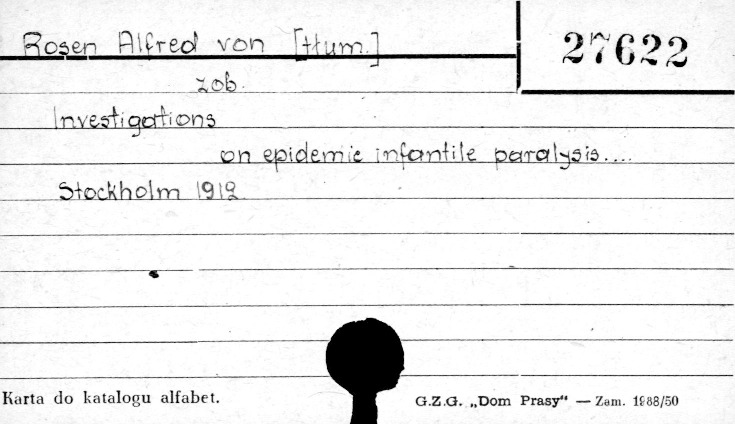 Rosen Alfred von [tłum.]
27622
zob.
Investigations
on epidemic infantile paralysis....
Stockholm 1912
Karta do katalogu alfabet.
G.Z.G. „Dom Prasy“ — Zam. 1988/50